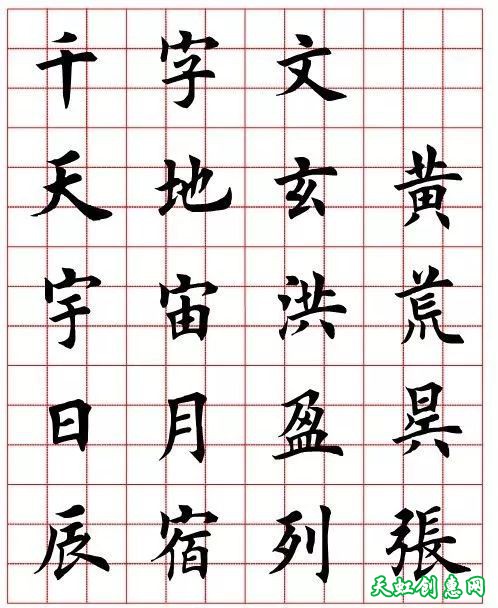 千字文
天地玄黄
宇宙洪荒
日月盈昃
辰宿列張
天虹创意网